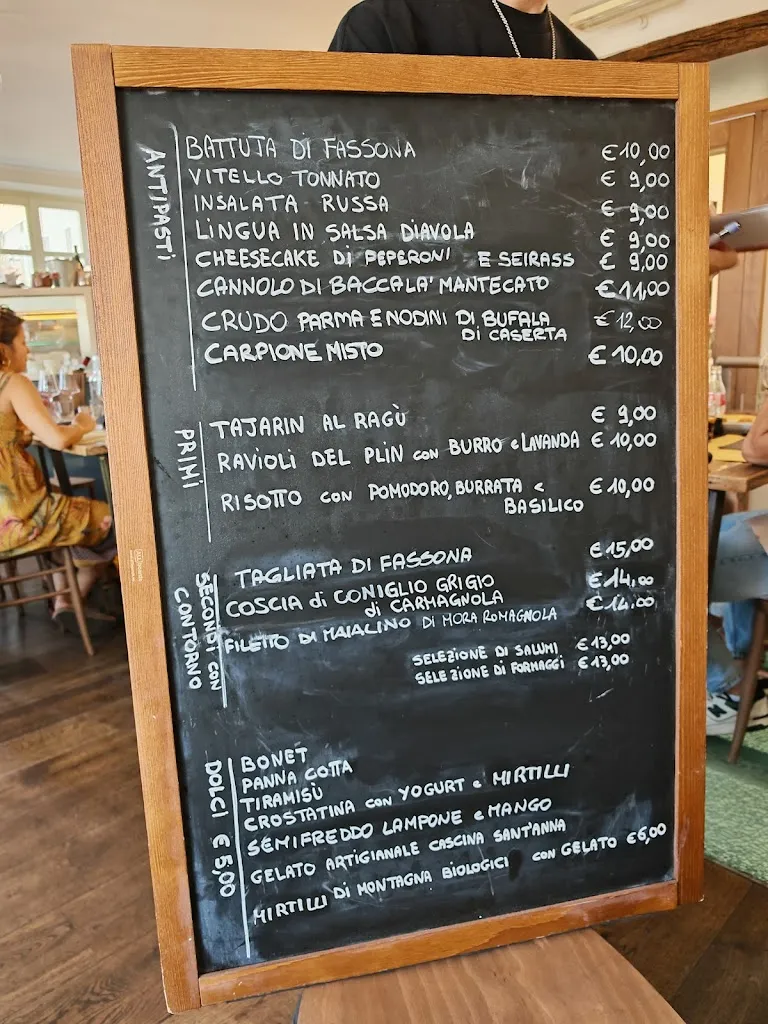 ANTIPASTI
BATTUTA DI FASSONA €10,00
VITELLO TONNATO € 9,00
INSALATA RUSSA € 9,00
LINGUA IN SALSA DIAVOLA € 9,00
CHEESECAKE DI PEPERONI E SEIRASS € 9,00
CANNOLO DI BACCALA' MANTECATO €11,00
CRUDO PARMA E NODINI DI BUFALA € 12,00
DI CASERTA
CARPIONE MISTO € 10,00
PRIMI
TAJARIN AL RAGÙ € 9,00
RAVIOLI DEL PLIN con BURRO e LAVANDA € 10,00
RISOTTO con POMODORO, BURRATA e € 10,00
BASILICO
SECONDI CON
CONTORNO
TAGLIATA DI FASSONA €15,00
COSCIA di CONIGLIO GRIGIO €14,00
di CARMAGNOLA
FILETTO DI MAIALINO DI MORA ROMAGNOLA €14.00
SELEZIONE DI SALUMI €13,00
SELEZIONE DI FORMAGGI €13,00
DOLCI € 5,00
BONET
PANNA COTTA
TIRAMISÙ
CROSTATINA con YOGURT e MIRTILLI
SEMIFREDDO LAMPONE e MANGO
GELATO ARTIGIANALE CASCINA SANT'ANNA
MIRTILLI DI MONTAGNA BIOLOGICI con GELATO €6,00